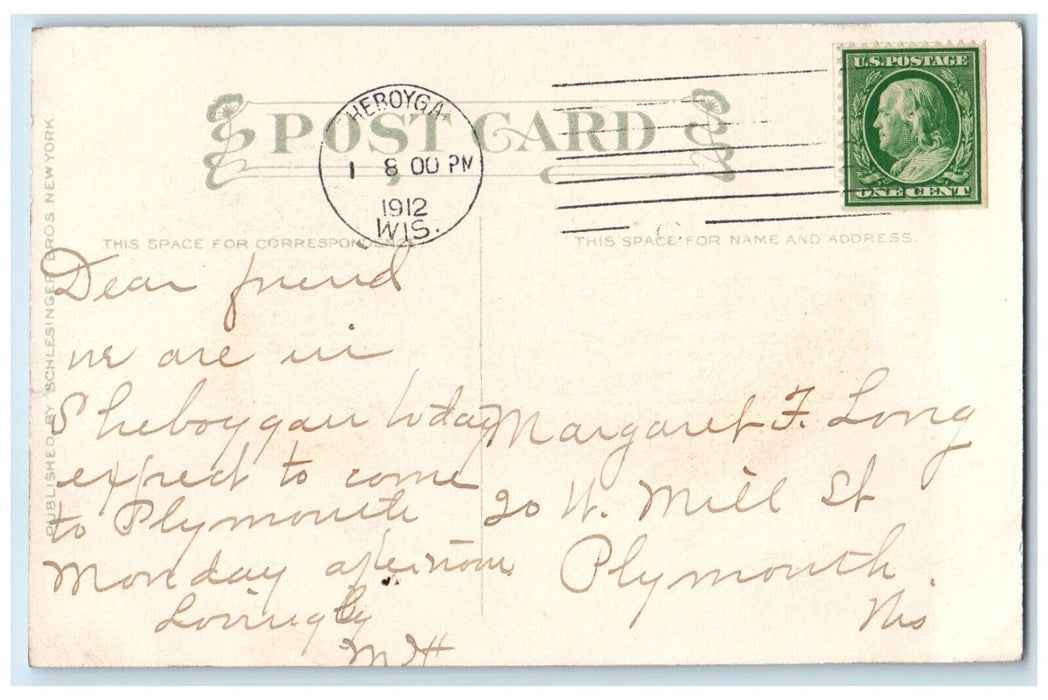 U.S. POSTAGE
ONE CENT
HEBOYGA
1 8 00 PM
1912
WIS.
POST CARD
THIS SPACE FOR CORRESPONDENCE
THIS SPACE FOR NAME AND ADDRESS.
PUBLISHED BY SCHLESINGER BROS. NEW YORK.
Dear friend
we are in
Sheboygan today
expect to come
to Plymouth
Monday afternoon
Lovingly
Margaret F. Long
20 W. Mill St
Plymouth.
Wis